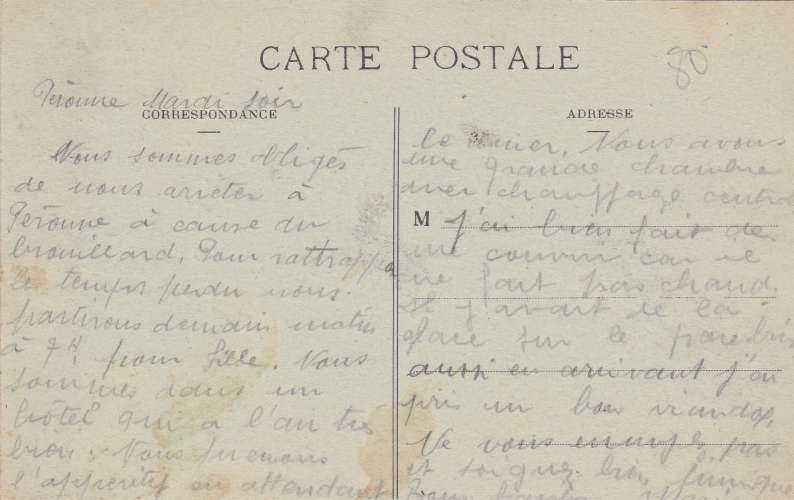 CARTE POSTALE
80
Péronne Mardi soir
CORRESPONDANCE
Nous sommes obligés
de nous arrêter à
Péronne à cause du
brouillard. Pour rattrapper
le temps perdu nous
partirons demain matin
à 7H pour Lille. Nous
sommes dans un
hôtel qui a l'air très
bien. Nous prenons
l'apperitif en attendant
ADRESSE
le Nous avons
une grande chambre
avec chauffage central
M J'ai bien fait de
me couvrir car il
ne fait pas chaud.
Il y avait de la
glace sur le pare bris
aussi en arrivant j'ai
pris un bon
Ne vous ennuyez pas
et soignez bien